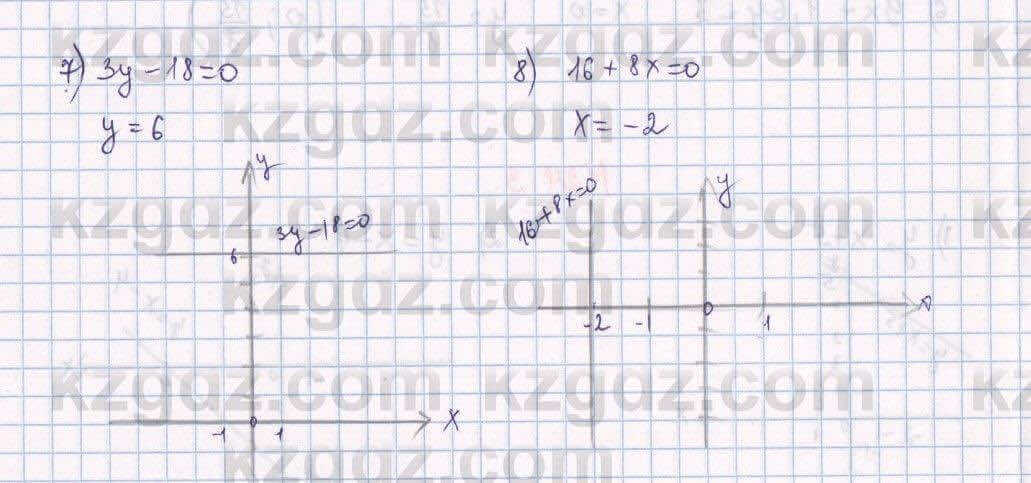 7) 3y - 18 = 0
y = 6
y
3y - 18 = 0
6
-1 0 1
x
8) 16 + 8x = 0
x = -2
y
16 + 8x = 0
-2 -1 0 1
kzgdz.com kzgdz.com kz
kzgdz.com
kzgdz.com kzgdz.com kz
kzgdz.com
kzgdz.com kzgdz.com kz
kzgdz.com